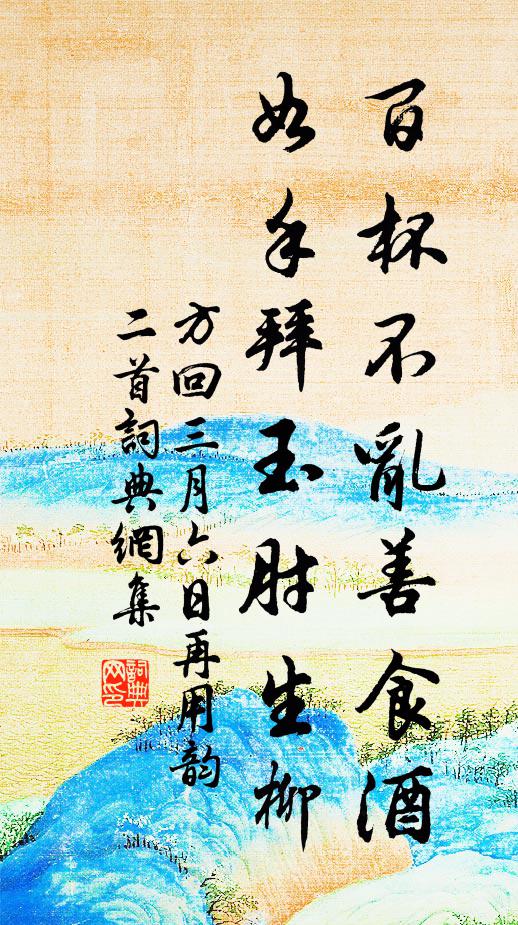 百杯不亂善食酒
如手拜玉肘生柳
方回三月六日再用韵
二首詞典網集
詞典
网印